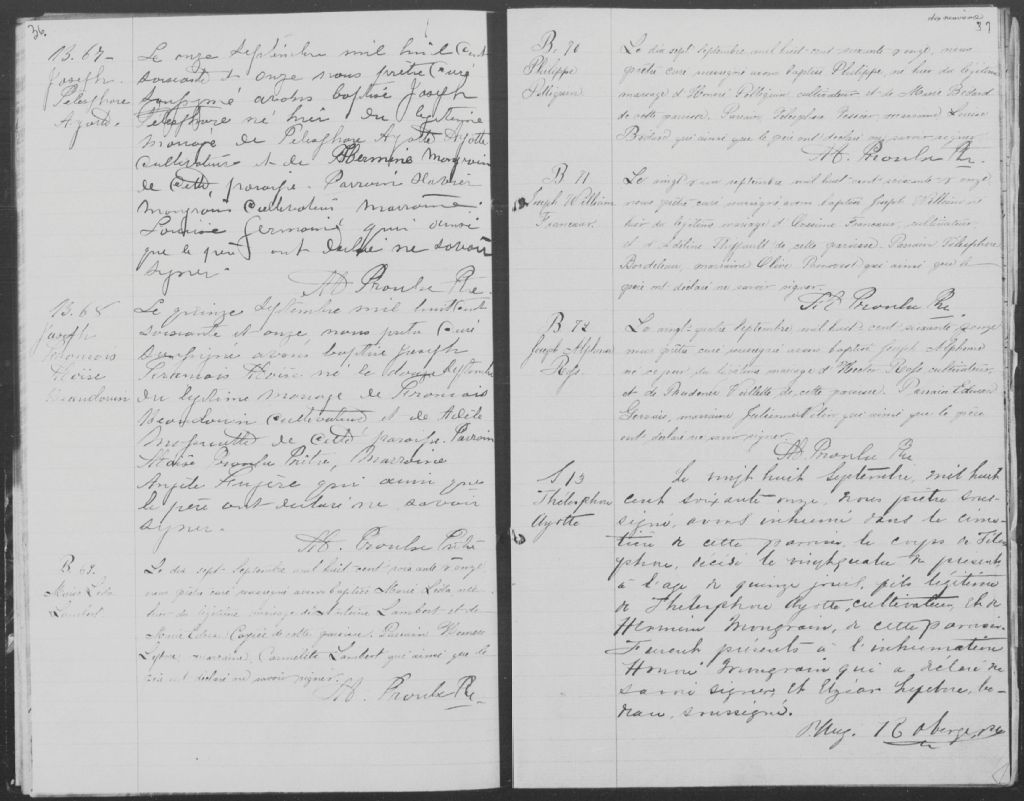 36
B. 67-
Joseph
Telesphore
Ayotte.
Le onze Septembre mil huit cent
soixante et onze nous prêtre Curé
soussigné avons baptisé Joseph
Telesphore né hier du légitime
mariage de Telesphore Ayotte
cultivateur et de Hermine Mongrain
de cette paroisse. Parrain Xavier
Mongrain cultivateur marraine
Louise Germain qui ainsi
que le père ont déclaré ne savoir
signer.
M. Proulx Ptre.
B. 68
Joseph
François
Moïse
Beaudouin
Le quinze Septembre mil huit cent
soixante et onze, nous prêtre Curé
soussigné avons baptisé Joseph
François Moïse né le douze Septembre
du légitime mariage de François
Beaudouin cultivateur et de Adèle
de cette paroisse. Parrain
Moïse Proulx Prêtre, Marraine
qui ainsi que
le père ont déclaré ne savoir
signer.
M. Proulx Ptre
B. 69.
Marie Léda
Lambert.
Le dix sept Septembre mil huit cent soixante & onze
nous prêtre curé soussigné avons baptisé Marie Léda née
hier du légitime mariage de Antoine Lambert et de
Marie de cette paroisse. Parrain
marraine, Carmelite Lambert qui ainsi que le
père ont déclaré ne savoir signer.
M. Proulx Ptre.
37
B. 70
Philippe
Pelliguin
Le dix sept Septembre mil huit cent soixante & onze, nous
prêtre curé soussigné avons baptisé Philippe, né hier du légitime
mariage d'Honoré Pelliguin cultivateur et de Marie Bédard
de cette paroisse. Parrain Télesphore marraine Louise
Bédard qui ainsi que le père ont déclaré ne savoir signer.
M. Proulx Ptre.
B 71
Joseph William
Francoeur.
Le vingt & un septembre mil huit cent soixante & onze
nous prêtre curé soussigné avons baptisé Joseph William né
hier du légitime mariage d'Onésime Francoeur, cultivateur,
et d'Adéline Thiffault de cette paroisse. Parrain Télesphore
Bordeleau, marraine Olive qui ainsi que le
père ont déclaré ne savoir signer.
M. Proulx Ptre.
B 72
Joseph Alphonse
Ross.
Le vingt-quatre Septembre mil huit cent soixante & onze
nous prêtre curé soussigné avons baptisé Joseph Alphonse
né ce jour du légitime mariage d'Hector Ross cultivateur
et de Prudence de cette paroisse. Parrain
Gervais, marraine qui ainsi que le père
ont déclaré ne savoir signer.
M. Proulx Ptre
S 13
Thelesphore
Ayotte
Le vingt huit Septembre, mil huit
cent soixante onze, nous prêtre sous-
signé, avons inhumé dans le cime-
tière de cette paroisse, le corps de Téles-
phore, décédé le vingtquatre du présent
à l'age de quinze jours, fils légitime
de Thelesphore Ayotte, cultivateur, et de
Hermine Mongrain, de cette paroisse.
Furent présents à l'inhumation
Honoré Mongrain qui a déclaré ne
savoir signer, et Elzéar Lefebvre, be-
deau, soussigné.